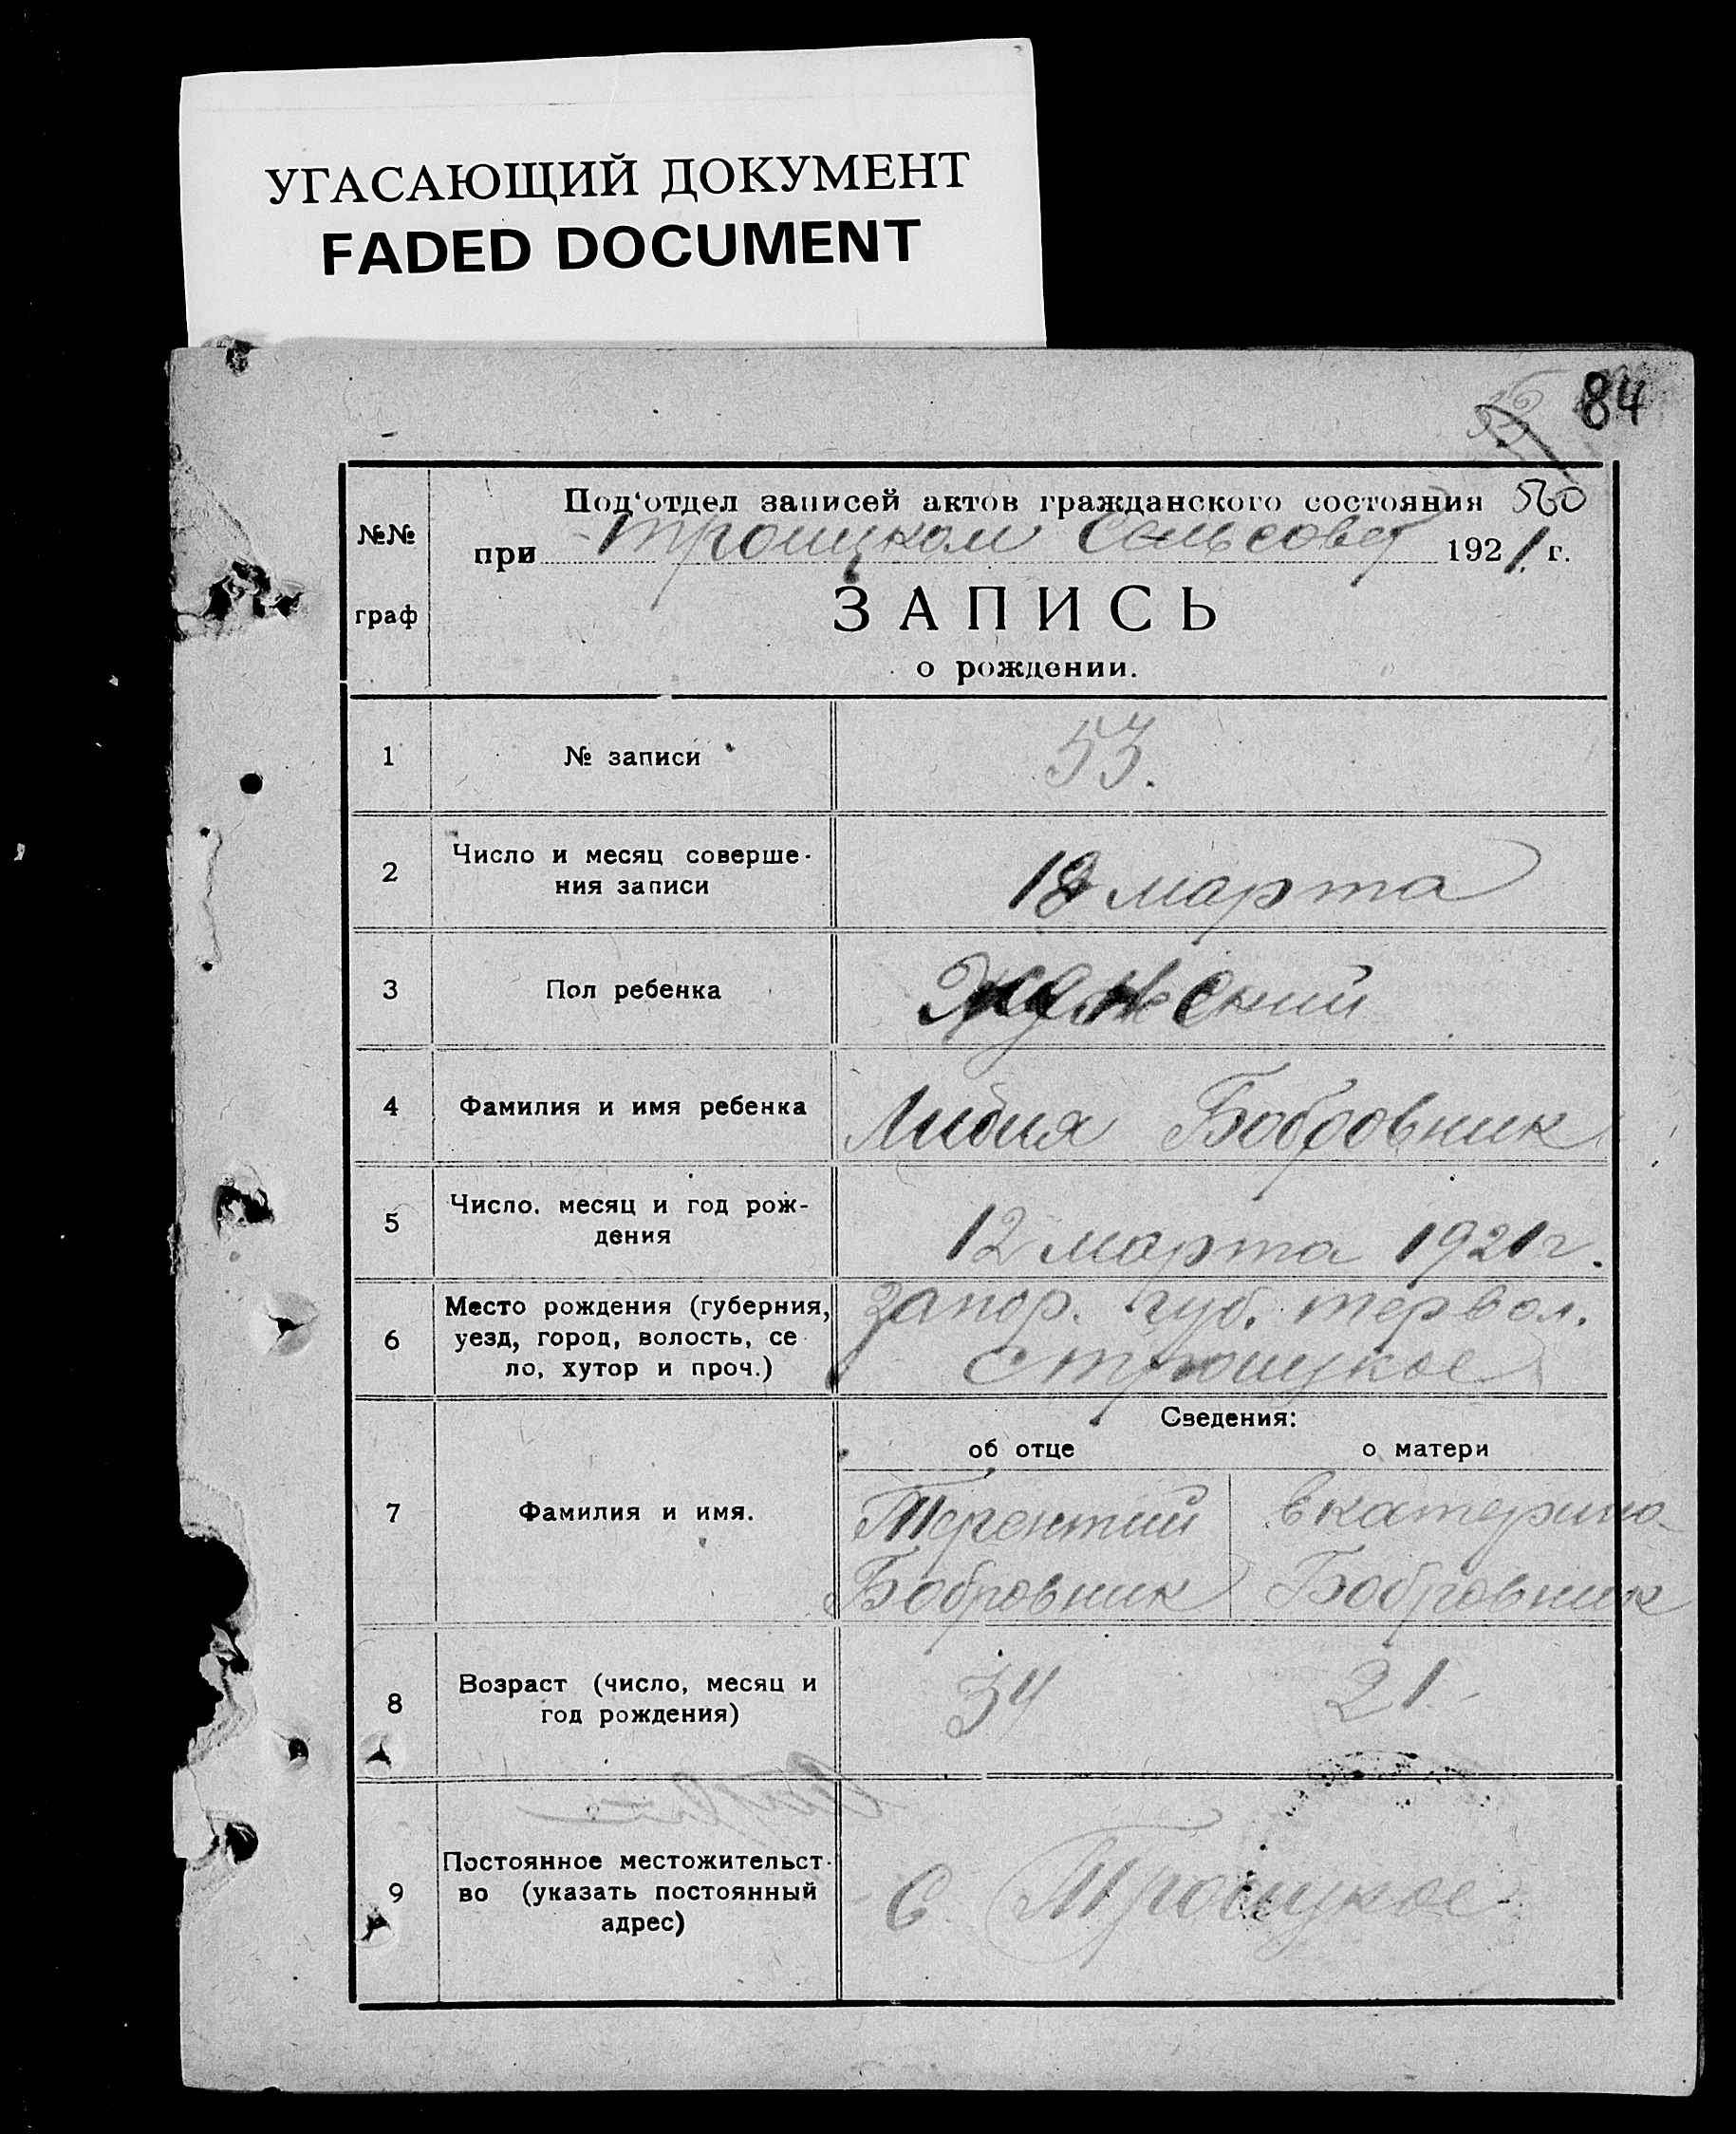 УГАСАЮЩИЙ ДОКУМЕНТ
FADED DOCUMENT
84
№№
граф
Под‘отдел записей актов гражданского состояния 560
при Троицком Сельсовет 1921 г.
ЗАПИСЬ
о рождении.
1 № записи 53.
2 Число и месяц соверше-
ния записи
18 марта
3 Пол ребенка Женский
4 Фамилия и имя ребенка Лидия Бобровник
5 Число, месяц и год рож-
дения
12 марта 1921 г.
6 Место рождения (губерния,
уезд, город, волость, се
ло, хутор и проч.)
Запор. губ. тер вол.
с троицкое
Сведения:
об отце о матери
7 Фамилия и имя.
Терентий Екатерина
Бобровник Бобровник
8 Возраст (число, месяц и
год рождения)
34 21
9 Постоянное местожительст-
во (указать постоянный
адрес)
С Троицкое